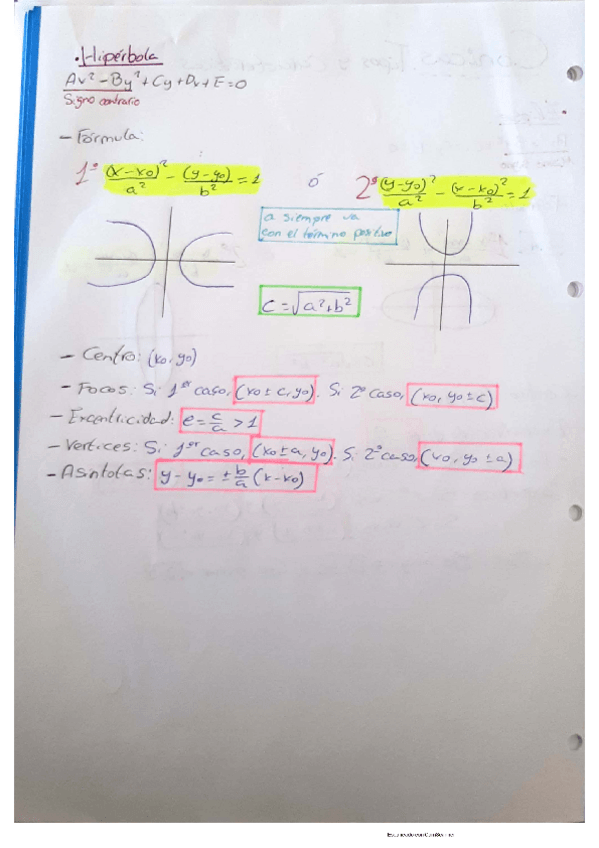 • Hipérbola
Ax² - By² + Cy + Dx + E = 0
Signo contrario
- Fórmula:
1º (x-x0)²/a² - (y-y0)²/b² = 1 ó 2º (y-y0)²/a² - (x-x0)²/b² = 1
a siempre va
con el término positivo
c = √(a²+b²)
- Centro: (x0, y0)
- Focos: Si 1er caso, (x0 ± c, y0). Si 2º caso, (x0, y0 ± c)
- Excentricidad: e = c/a > 1
- Vertices: Si 1er caso, (x0 ± a, y0). Si 2º caso, (x0, y0 ± a)
- Asintotas: y - y0 = ± b/a (x - x0)
Escaneado con CamScanner